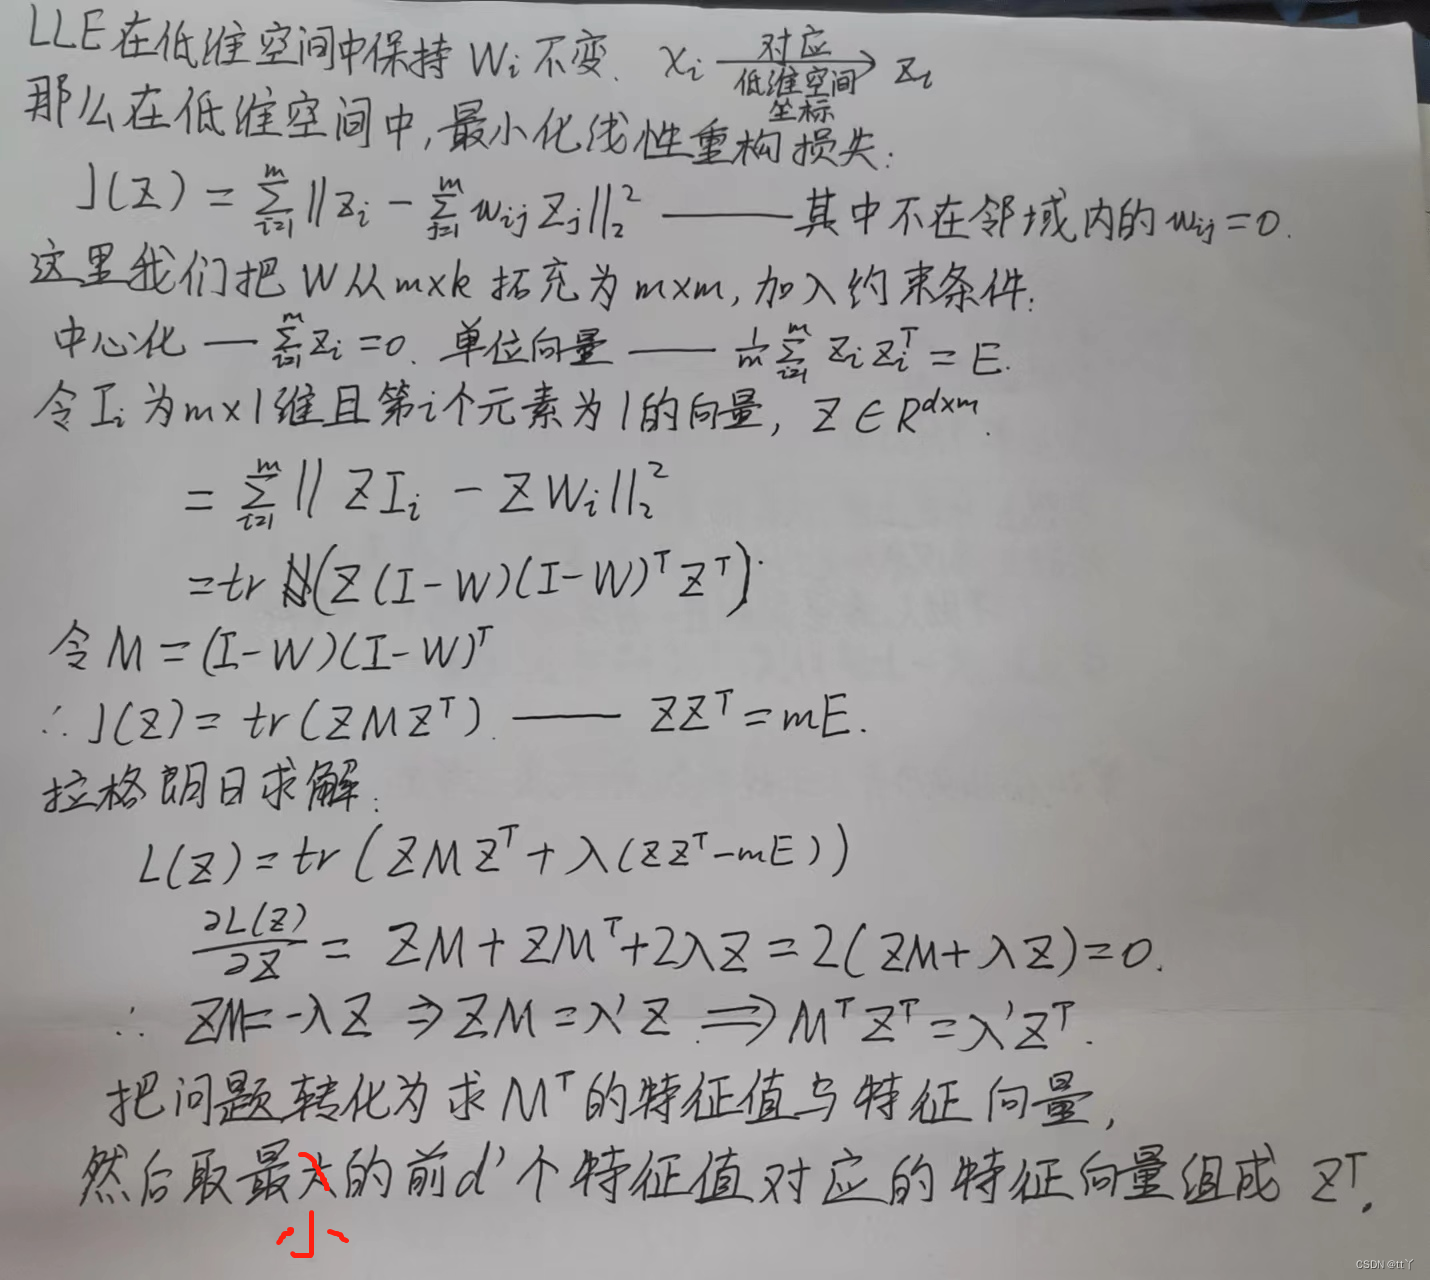 LLE在低维空间中保持 Wi 不变. xi ⟶ zi 对应 低维空间 坐标
那么在低维空间中,最小化线性重构损失:
J(Z) = Σ_{i=1}^{m} ‖zi − Σ_{j=1}^{m} wij Zj‖₂² —— 其中不在邻域内的 wij=0.
这里我们把 W 从 m×k 拓充为 m×m, 加入约束条件:
中心化 — Σ_{i=1}^{m} Zi = 0. 单位向量 —— 1/m Σ_{i=1}^{m} Zi Zi^T = E.
令 Ii 为 m×1 维且第i个元素为1的向量, Z ∈ R^{d×m}.
= Σ_{i=1}^{m} ‖ZIi − ZWi‖₂²
= tr (Z(I−W)(I−W)^T Z^T).
令 M = (I−W)(I−W)^T
∴ J(Z) = tr(ZMZ^T). —— ZZ^T = mE.
拉格朗日求解:
L(Z) = tr(ZMZ^T + λ(ZZ^T−mE))
∂L(Z)/∂Z = ZM + ZM^T + 2λZ = 2(ZM + λZ) = 0.
∴ ZM = −λZ ⇒ ZM = λ'Z ⟹ M^T Z^T = λ'Z^T.
把问题转化为求 M^T 的特征值与特征向量,
然后取最大的前d'个特征值对应的特征向量组成 Z^T.
小
CSDN @tt丫